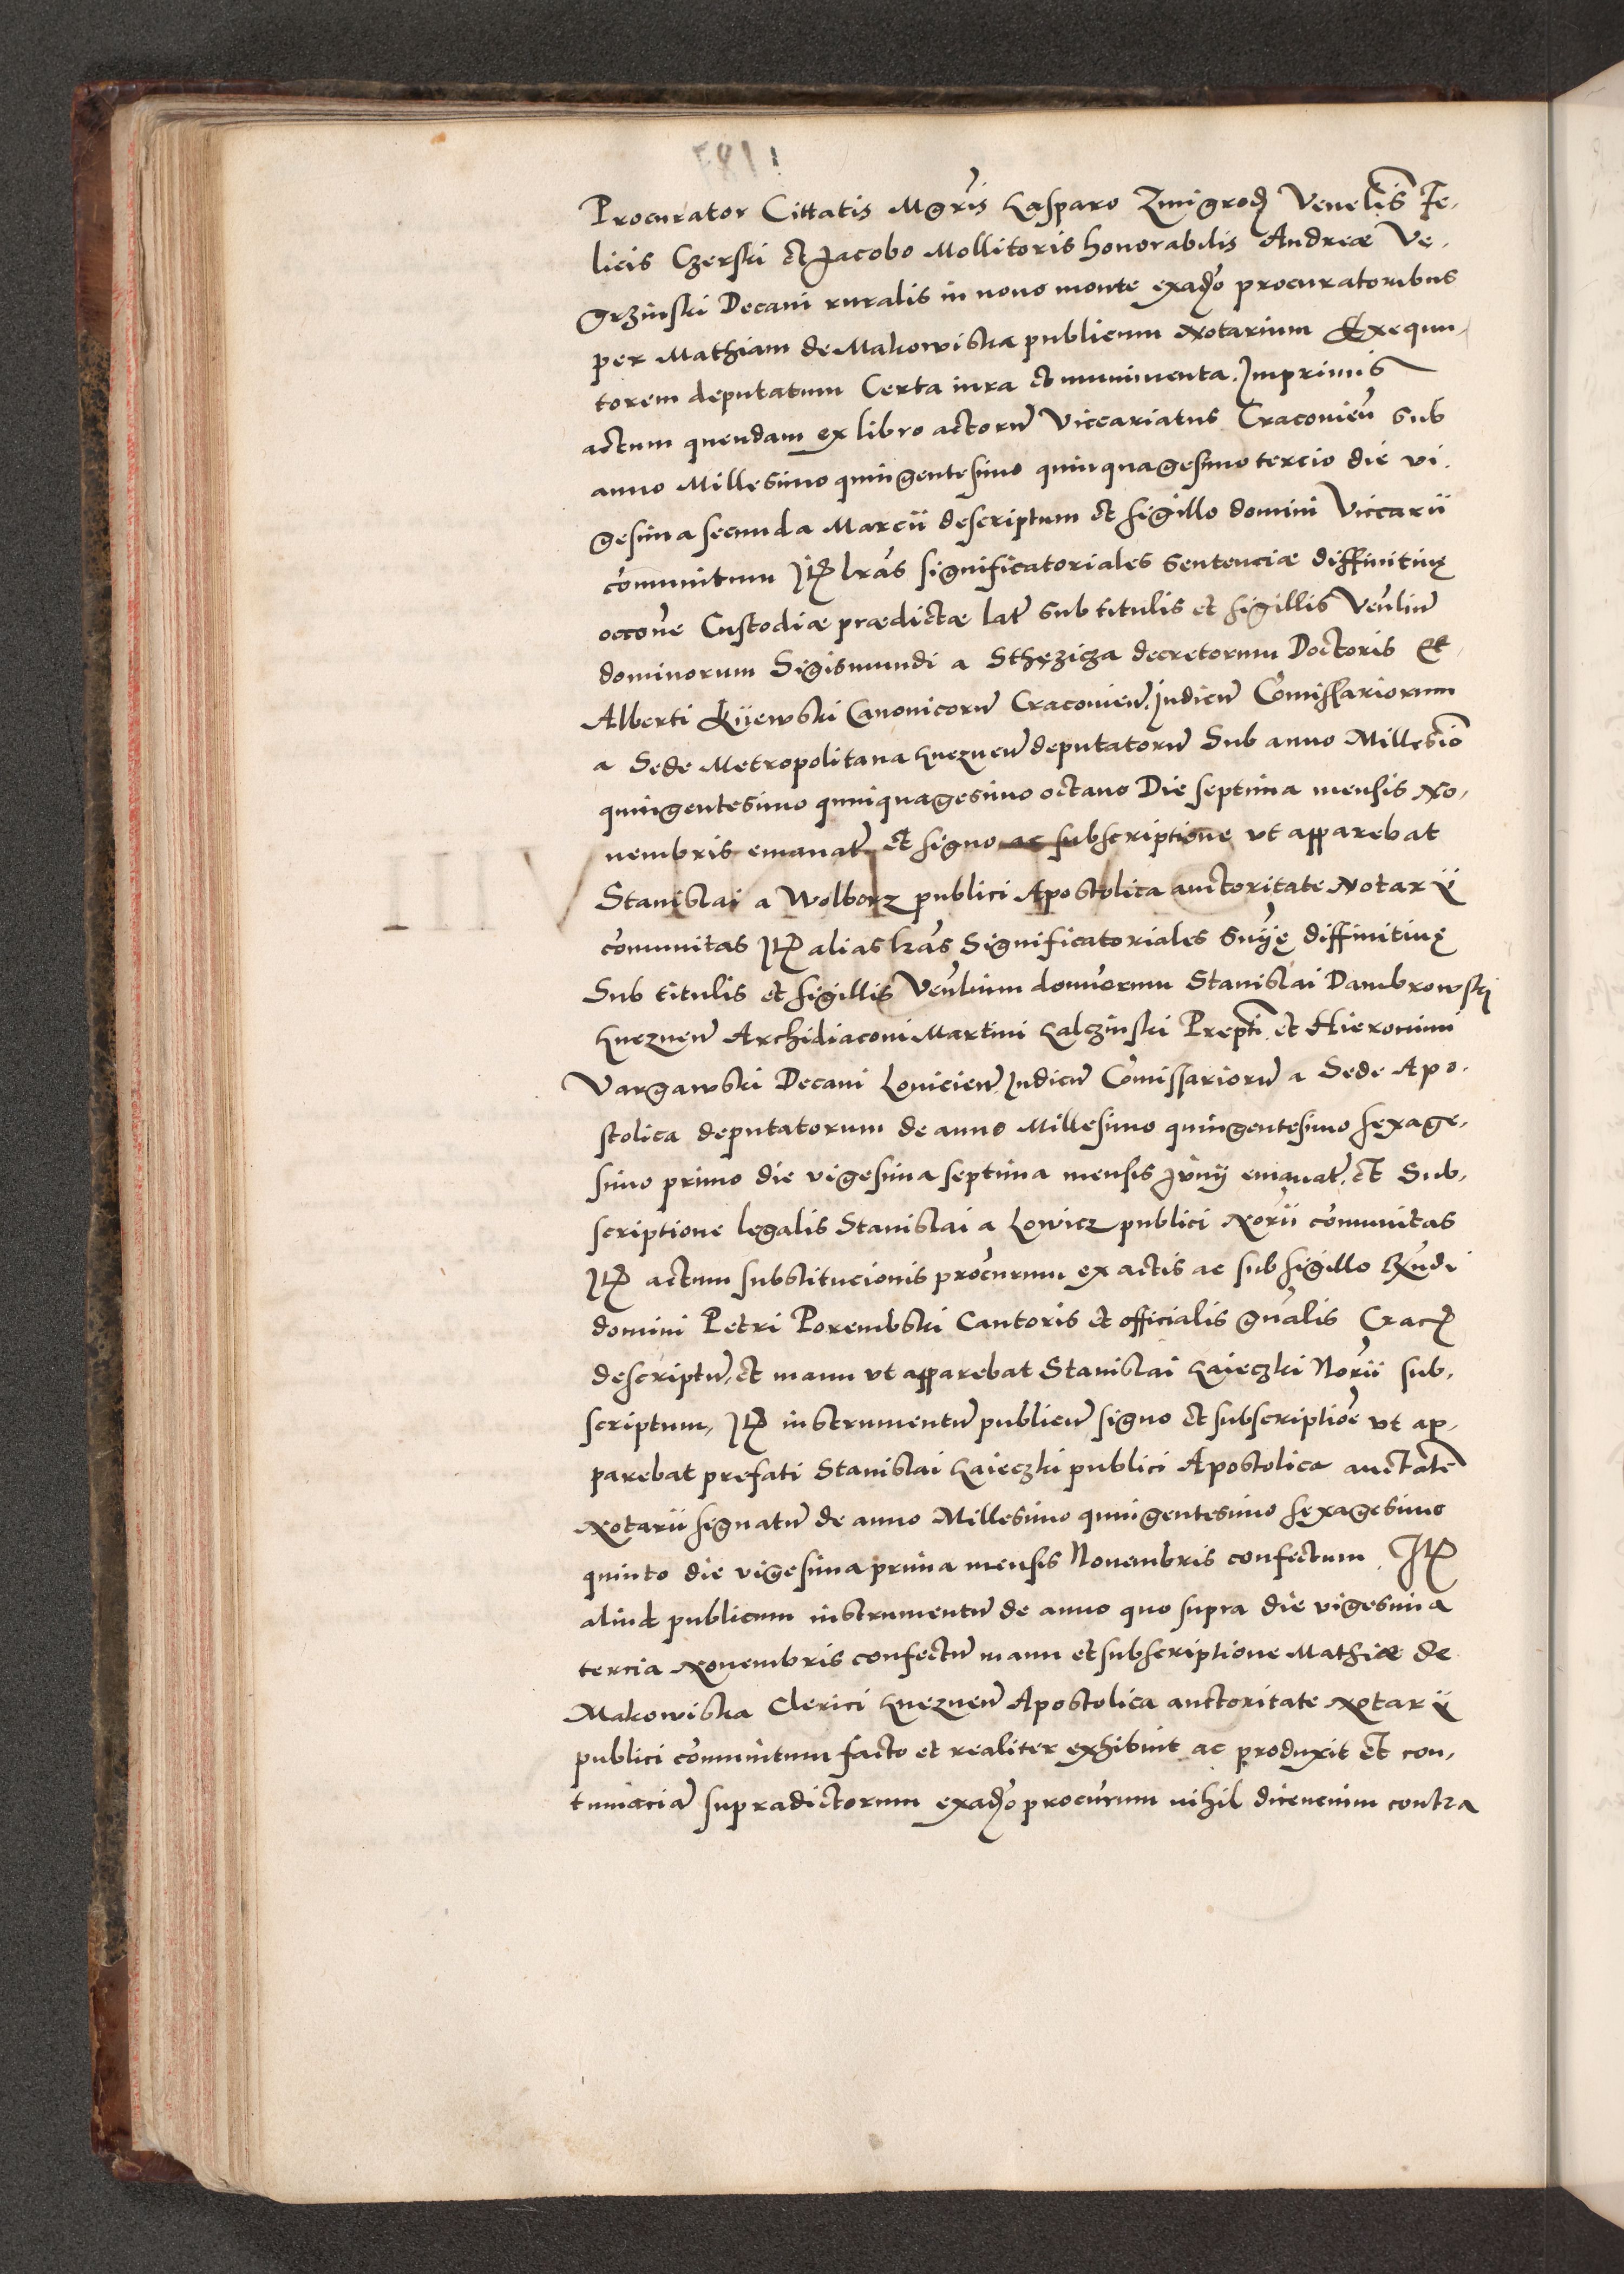 Procurator Cittatis Mgr̃is Gasparo Zmigrod Venelis Fe-
licis Czerski et Jacobo Mollitoris honorabilis Andreæ Ve-
grzinski Decani ruralis in nouo monte exadõ procuratoribus
per Mathiam de Makowiska publicum Notarium Exequu-
torem deputatum Certa iura et munimenta. Imprimis
actum quendam ex libro actorũ Viccariatus Cracovieñ sub
anno Millesimo quingentesimo quinquagesimo tercio die vi-
gesima secunda Marcii descriptum et sigillo domini Viccarii
comunitum Itẽ lrãs significatoriales sentenciæ diffinitiuę
occõne Custodiæ prædictæ latẽ sub titulis et sigillis Veñliũ
dominorum Sigismundi a Sthęzicza decretorum Doctoris Et
Alberti Kijewski Canonicorũ Cracovieñ. Judicũ Comissariorum
a Sede Metropolitana Gnezneñ deputatorũ Sub anno Millesio
quingentesimo quinquagesimo octauo Die septima mensis No-
uembris emanatẽ et signo ac subscriptione vt apparebat
Stanislai a Wolborz publici Apostolica auctoritate Notarii
comunitas Itẽ alias lrãs Significatoriales Sniię diffinitiuę
Sub titulis et sigillis Veñlium domiorum Stanislai Dambrowski
Gnezneñ Archidiaconi Martini Galczinski Prepti et Hieronimi
Vargawski Decani Lovicieñ Judicũ Comissariorũ a Sede Apo-
stolica deputatorum de anno Millesimo quingentesimo sexage-
simo primo die vigesima septima mensis Junij emanatẽ. et Sub-
scriptione legalis Stanislai a Lowicz publici Norii comunitas
Itẽ actum substitucionis procũrum ex actis ac sub sigillo Rũdi
domini Petri Porembski Cantoris et officialis gñalis Crac
descriptũ, et manu vt apparebat Stanislai Gaieczki Norii sub-
scriptum, Itẽ instrumentũ publicũ signo et subscriptioẽ vt ap-
parebat prefati Stanislai Gaieczki publici Apostolica auctate
Notarii signatũ de anno Millesimo quingentesimo sexagesimo
quinto die vigesima prima mensis Nouembris confectum. Itẽ
aliud publicum instrumentũ de anno quo supra die vigesima
tercia Nouembris confectũ manu et subscriptione Mathiæ de
Makowiska Clerici Gnezneñ Apostolica auctoritate Notarii
publici comunitum facto et realiter exhibuit ac produxit et con-
tumaciã supradictorum exadõ procũrum nihil dicencium contra